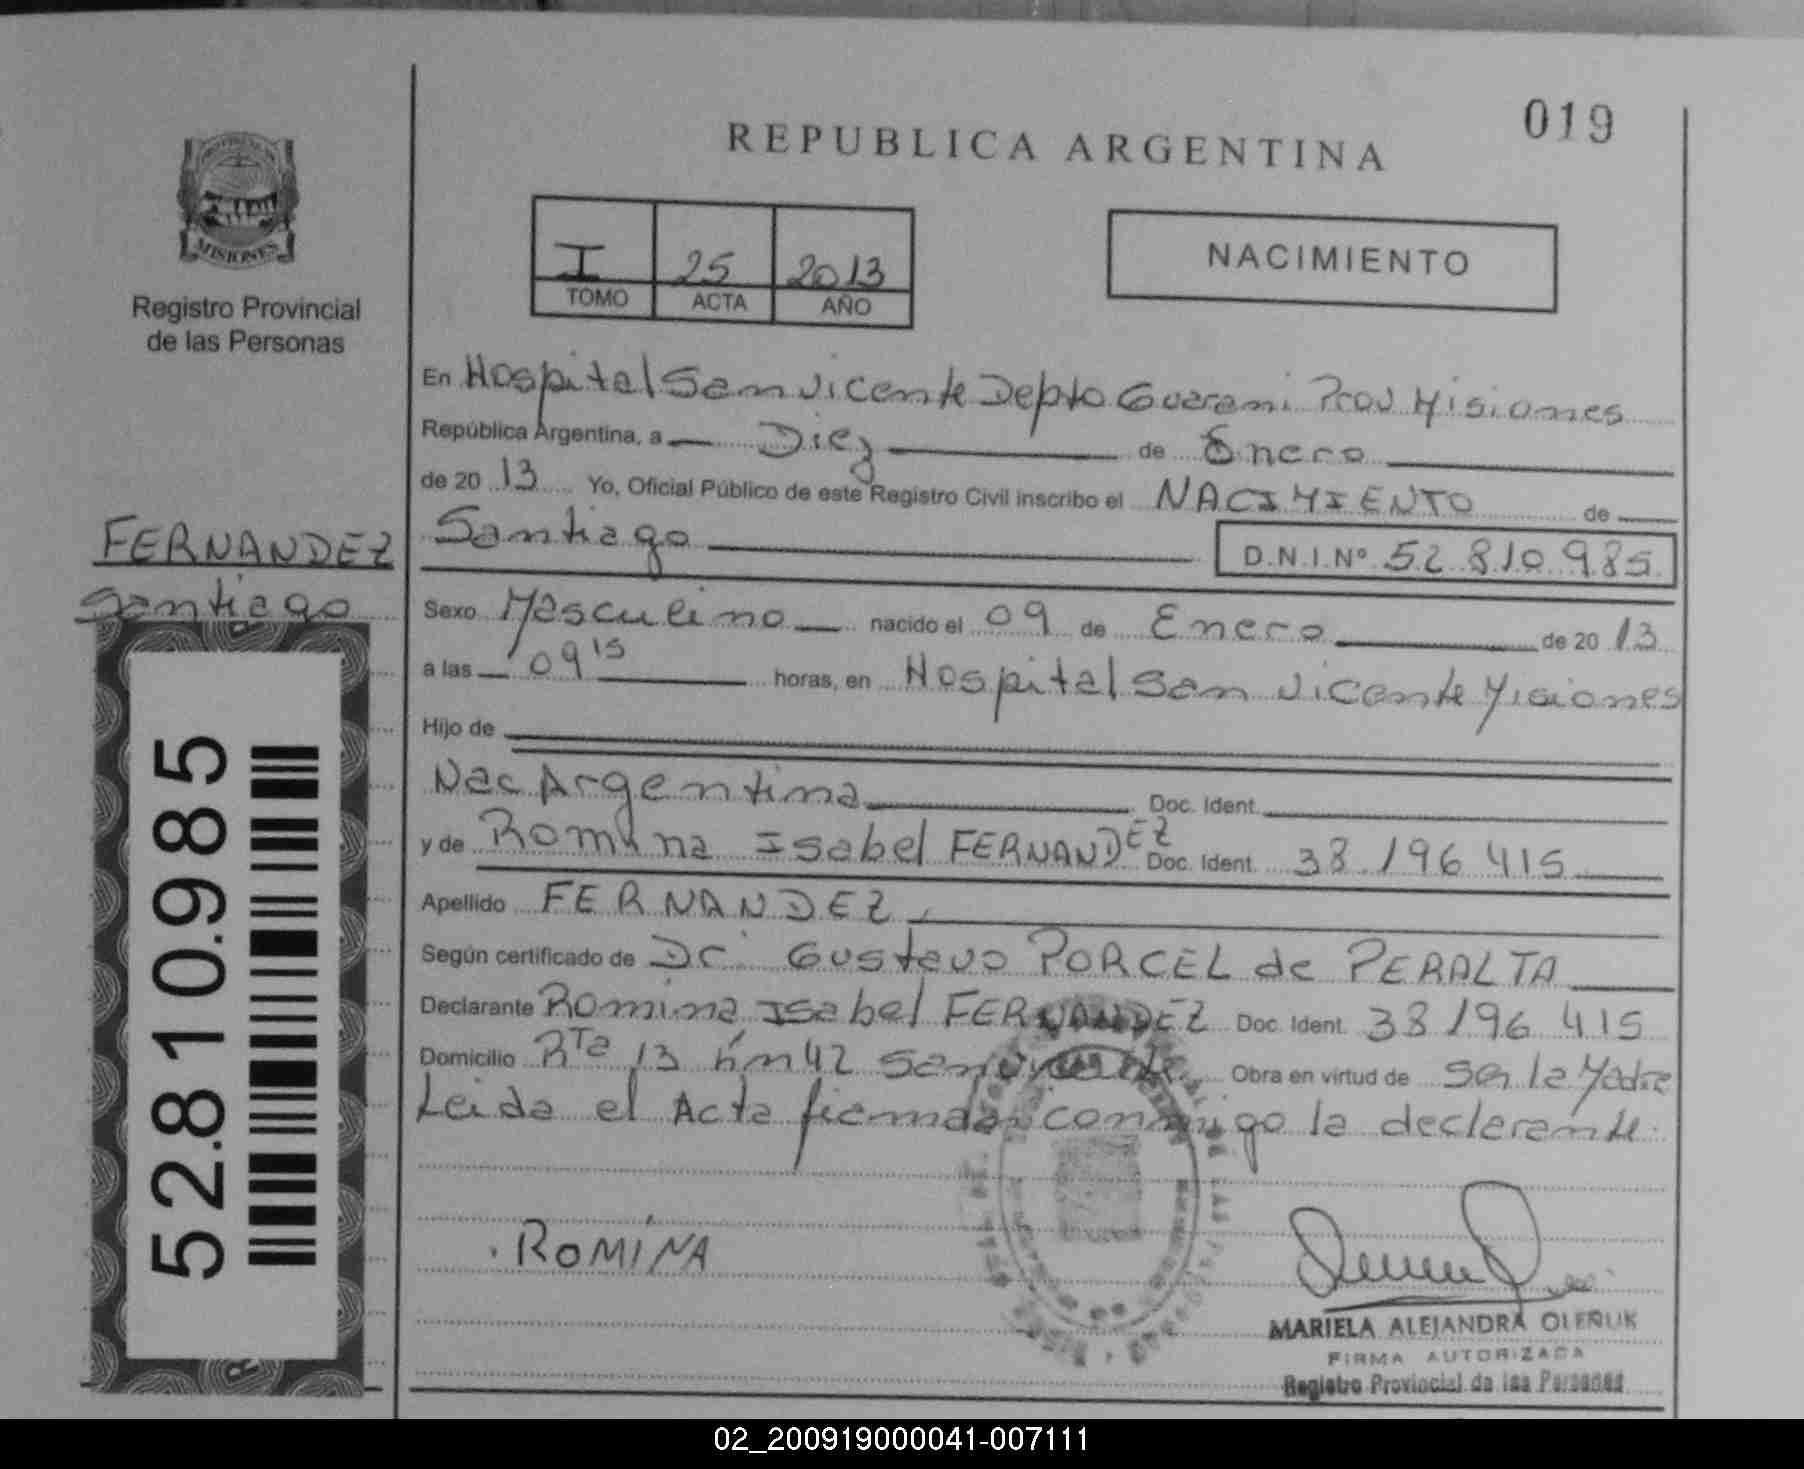 019
REPUBLICA ARGENTINA
PROVINCIA DE
MISIONES
Registro Provincial
de las Personas
I 25 2013
TOMO ACTA AÑO
NACIMIENTO
En Hospital San Vicente Depto Guarani Prov Misiones
República Argentina, a Diez de Enero
de 20 13 Yo, Oficial Público de este Registro Civil inscribo el NACIMIENTO de
Santiago D.N.I.Nº 52 810 985
FERNANDEZ
Santiago
52.810.985
Sexo Masculino nacido el 09 de Enero de 20 13
a las 09 15 horas, en Hospital San Vicente Misiones
Hijo de
Nac Argentina Doc. Ident.
y de Romina Isabel FERNANDEZ Doc. Ident. 38 196 415
Apellido FERNANDEZ
Según certificado de Dr. Gustavo PORCEL de PERALTA
Declarante Romina Isabel FERNANDEZ Doc. Ident. 38 196 415
Domicilio Rta 13 km 42 San Vicente Obra en virtud de Ser la Madre
Leida el Acta firma conmigo la declarante.
ROMINA
MARIELA ALEJANDRA OLENIUK
FIRMA AUTORIZADA
Registro Provincial de las Personas
02_200919000041-007111